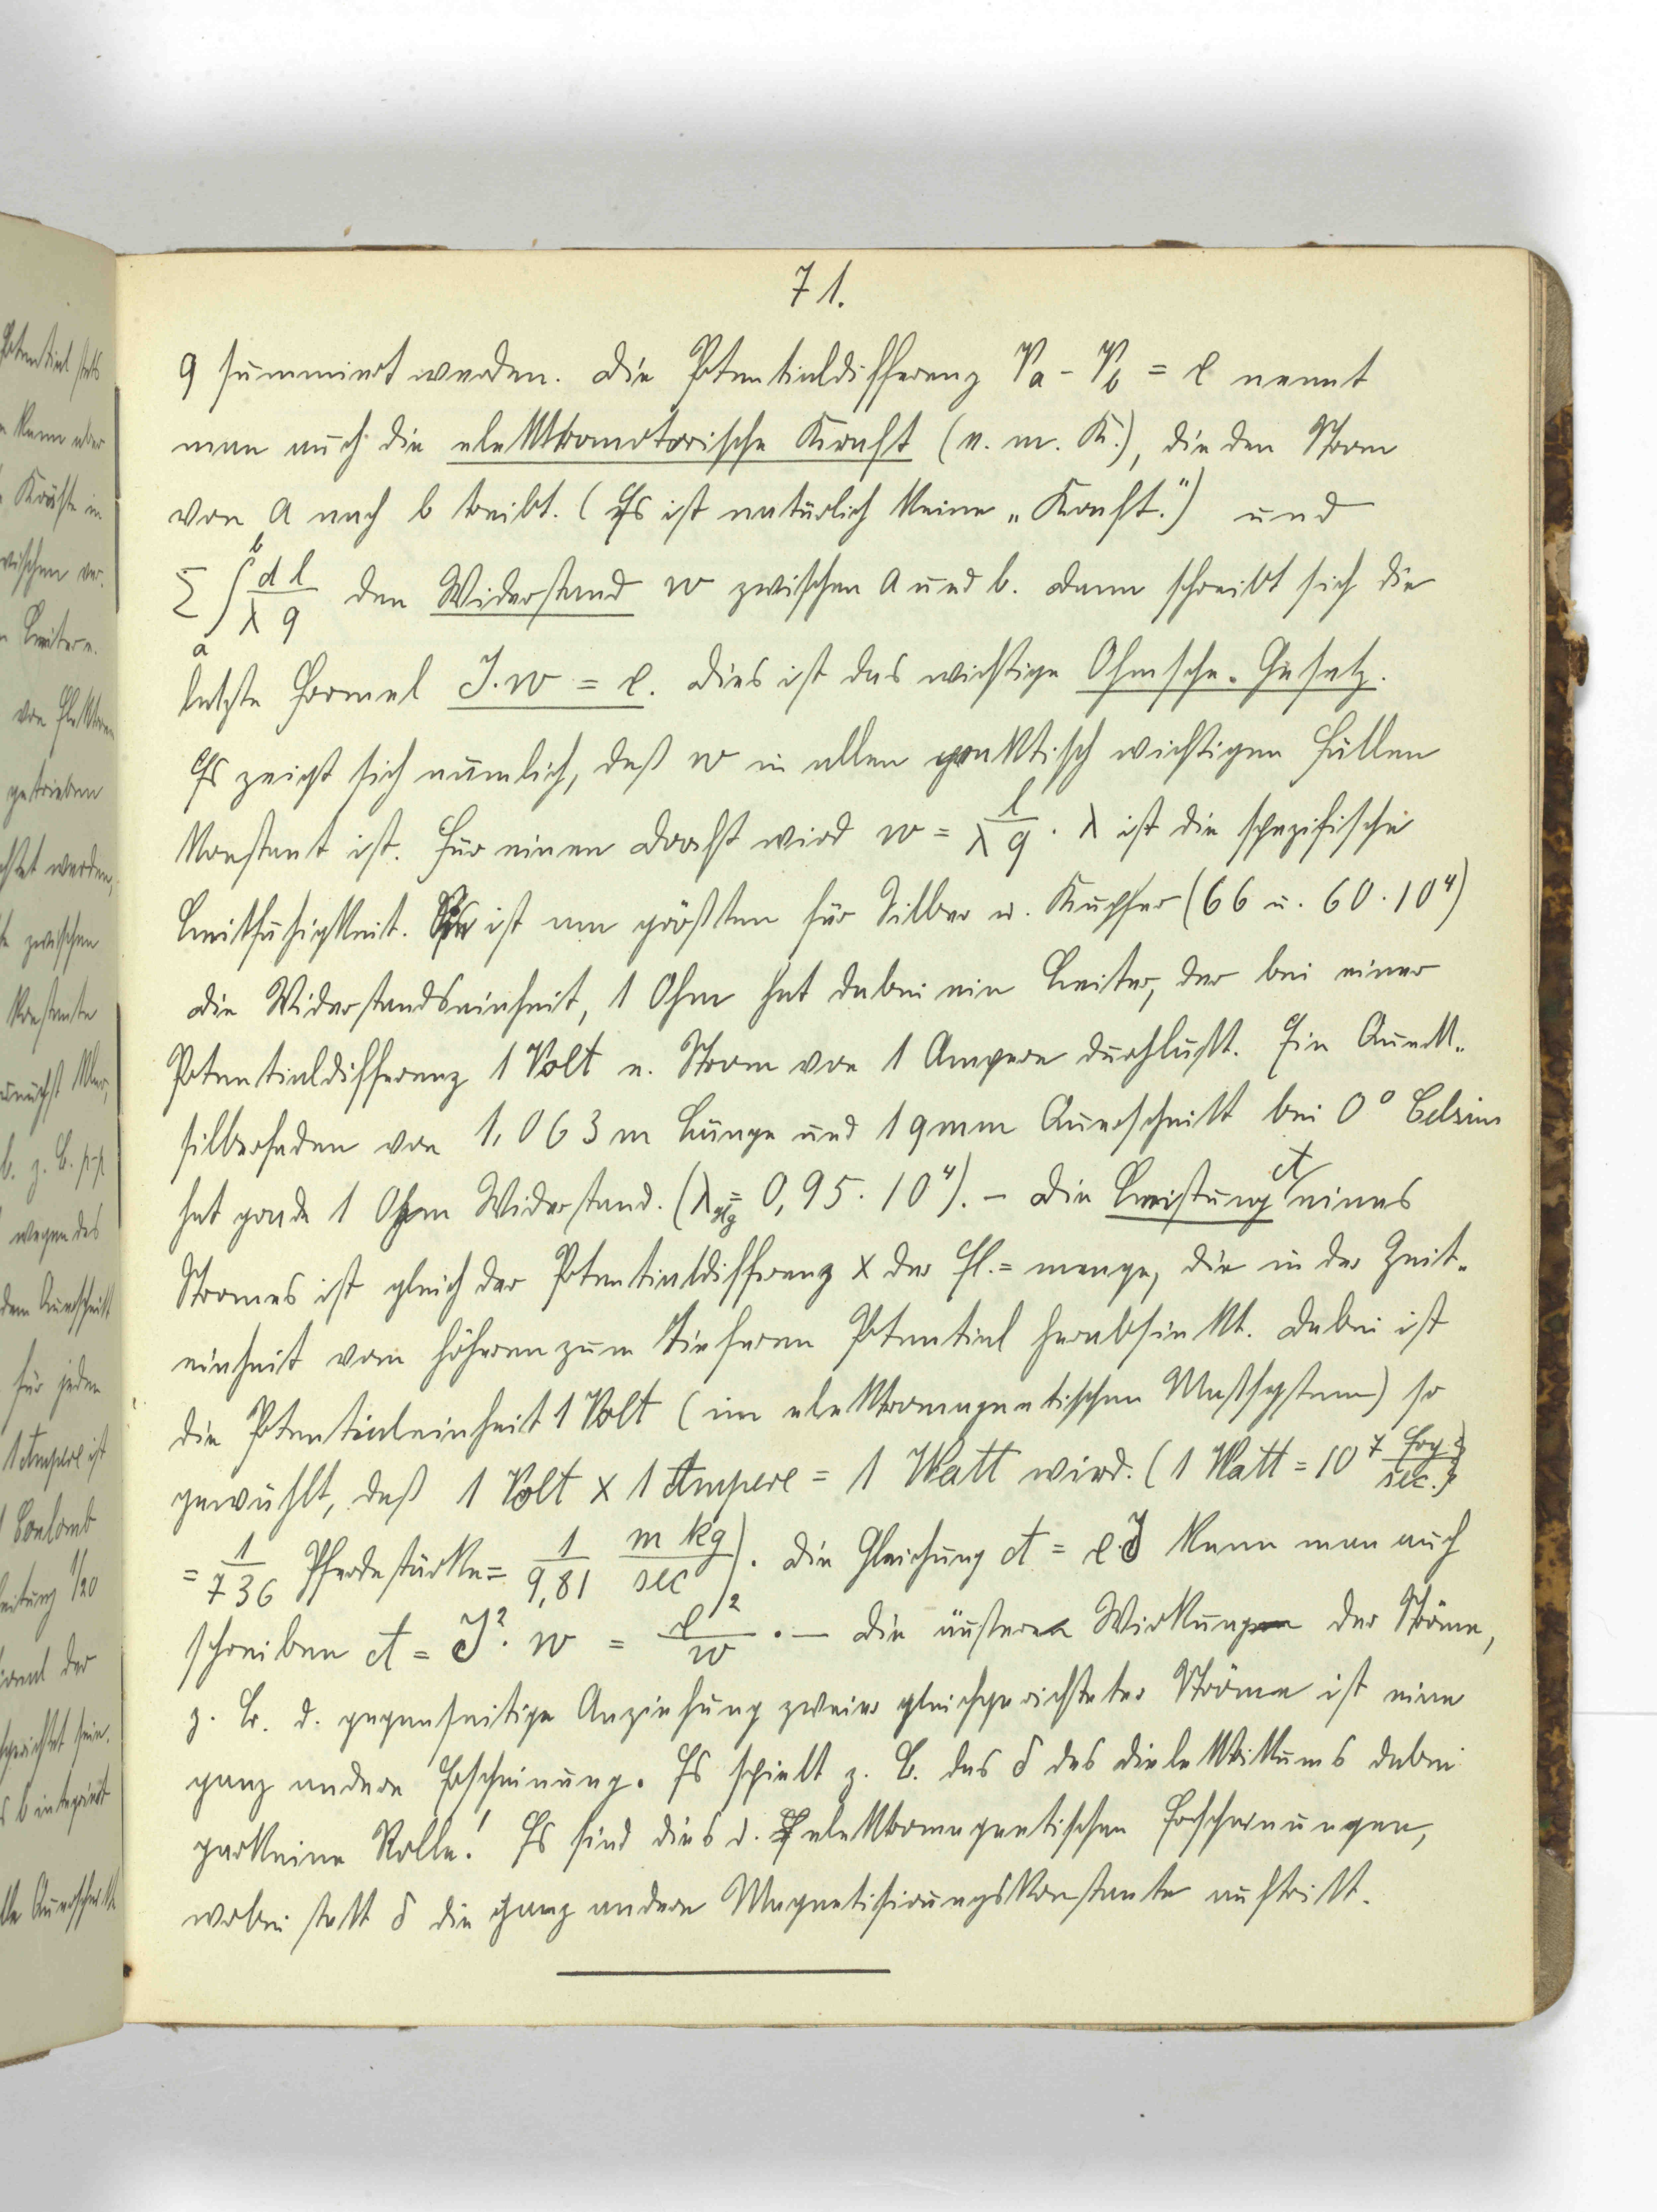 71.
q summiert werden. Die Potentialdifferenz Va - Vb = e nennt
man auch die elektromotorische Kraft (e. m. K.), die den Strom
von a nach b treibt. (Es ist natürlich keine „Kraft.“) und
∑ ∫ₐᵇ dl/λq den Widerstand w zwischen a und b. Dann schreibt sich die
letzte Formel J.w = e. Dies ist das wichtige Ohmsche-Gesetz.
Es zeigt sich nämlich, daß w in allen praktisch wichtigen Fällen
konstant ist. Für einen Draht wird w = l/λq. λ ist die spezifische
Leitfähigkeit. Sie ist am größten für Silber u. Kupfer (66 u. 60.10⁴)
Die Widerstandseinheit, 1 Ohm hat dabei ein Leiter, der bei einer
Potentialdifferenz 1 Volt e. Strom von 1 Ampere durchläßt. Ein Queck-
silberfaden von 1,063 m Länge und 1 qmm Querschnitt bei 0° Celsius
hat grade 1 Ohm Widerstand. (λHg = 0,95.10⁴). – Die Leistung A eines
Stromes ist gleich der Potentialdifferenz x der El.= menge, die in der Zeit-
einheit vom höheren zum tieferen Potential herabsinkt. Dabei ist
die Potentialeinheit 1 Volt (im elektromagnetischen Maßsystem) so
gewählt, daß 1 Volt x 1 Ampere = 1 Watt wird. (1 Watt = 10⁷ Erg/sec.
= 1/736 Pferdestärke = 1/9,81 m kg/sec). Die Gleichung A = e.J kann man auch
schreiben A = J². w = e²/w. — Die äußere Wirkung der Ströme,
z. B. d. gegenseitige Anziehung zweier gleichgerichteter Ströme ist eine
ganz andere Erscheinung. Es spielt z. B. das δ des Dielektrikums dabei
garkeine Rolle! Es sind dies d. elektromagnetischen Erscheinungen,
wobei statt δ die ganz andere Magnetisierungskonstante auftritt.